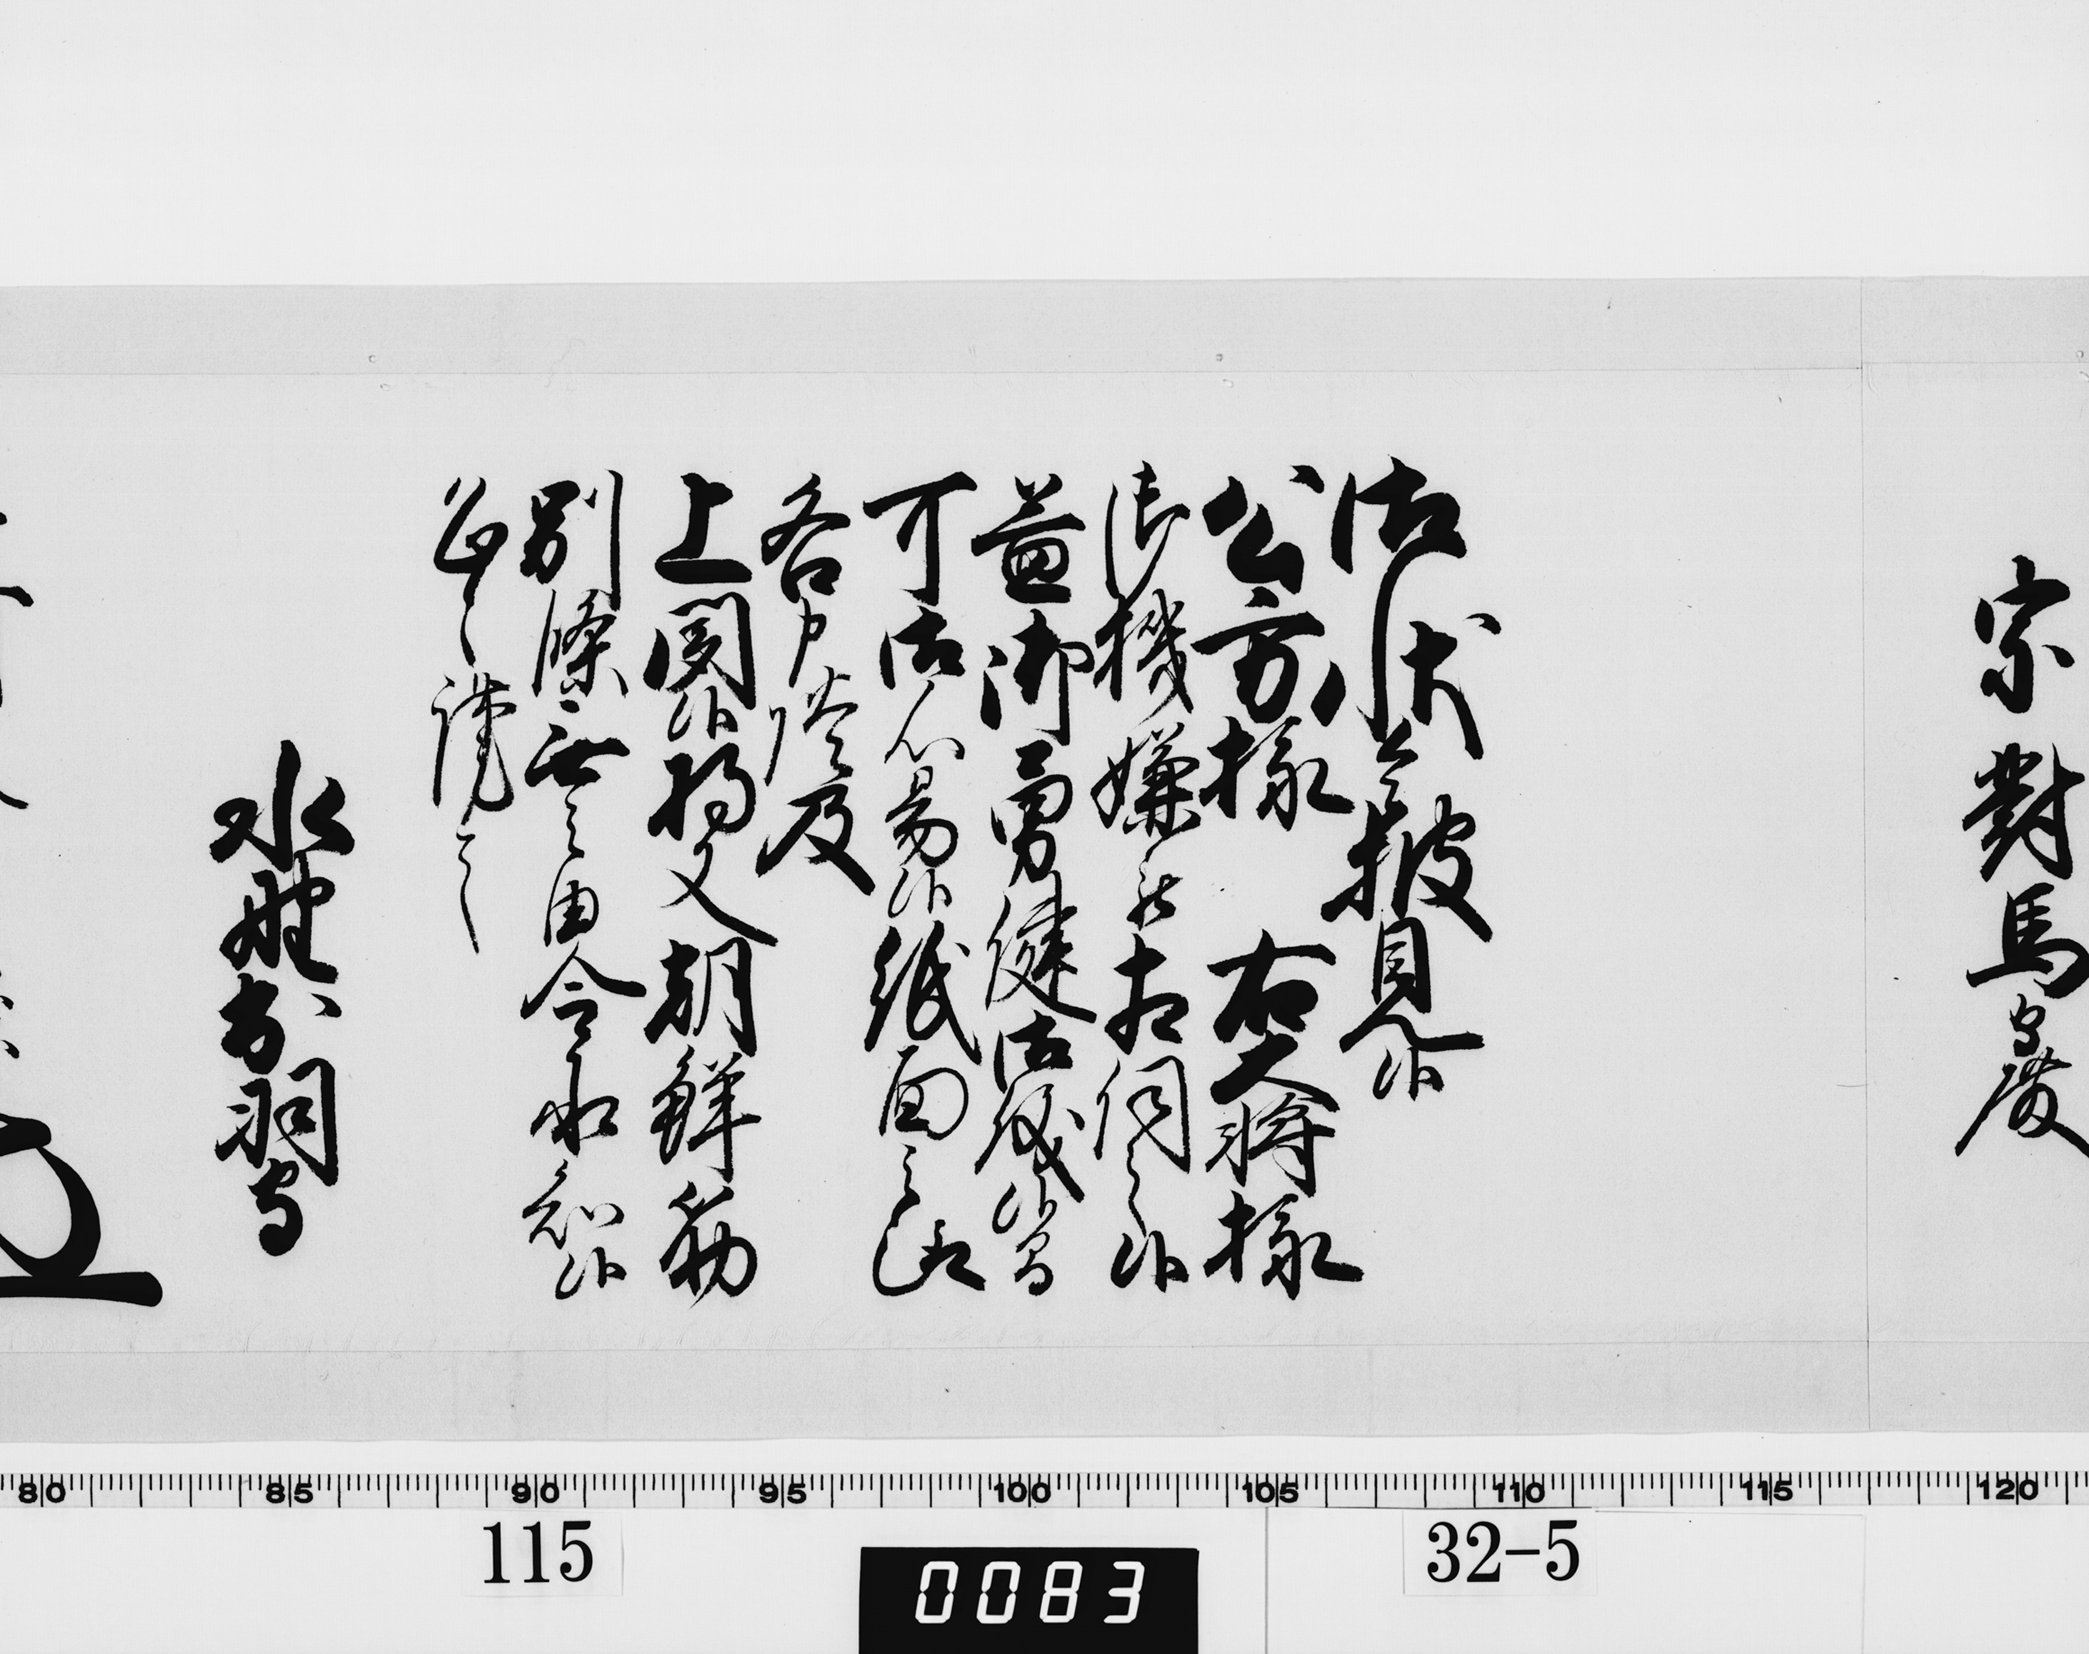 宗對馬守殿
御状令披見候
公方様 右大将様
御機嫌被相伺之候
益御勇健御儀候間
可御心易候紙面之趣
各申談及
上聞候将又朝鮮筋
別條無之由令承知候
恐々謹言
水野出羽守
80 85 90 95 100 105 110 115 120
115
0083
32-5